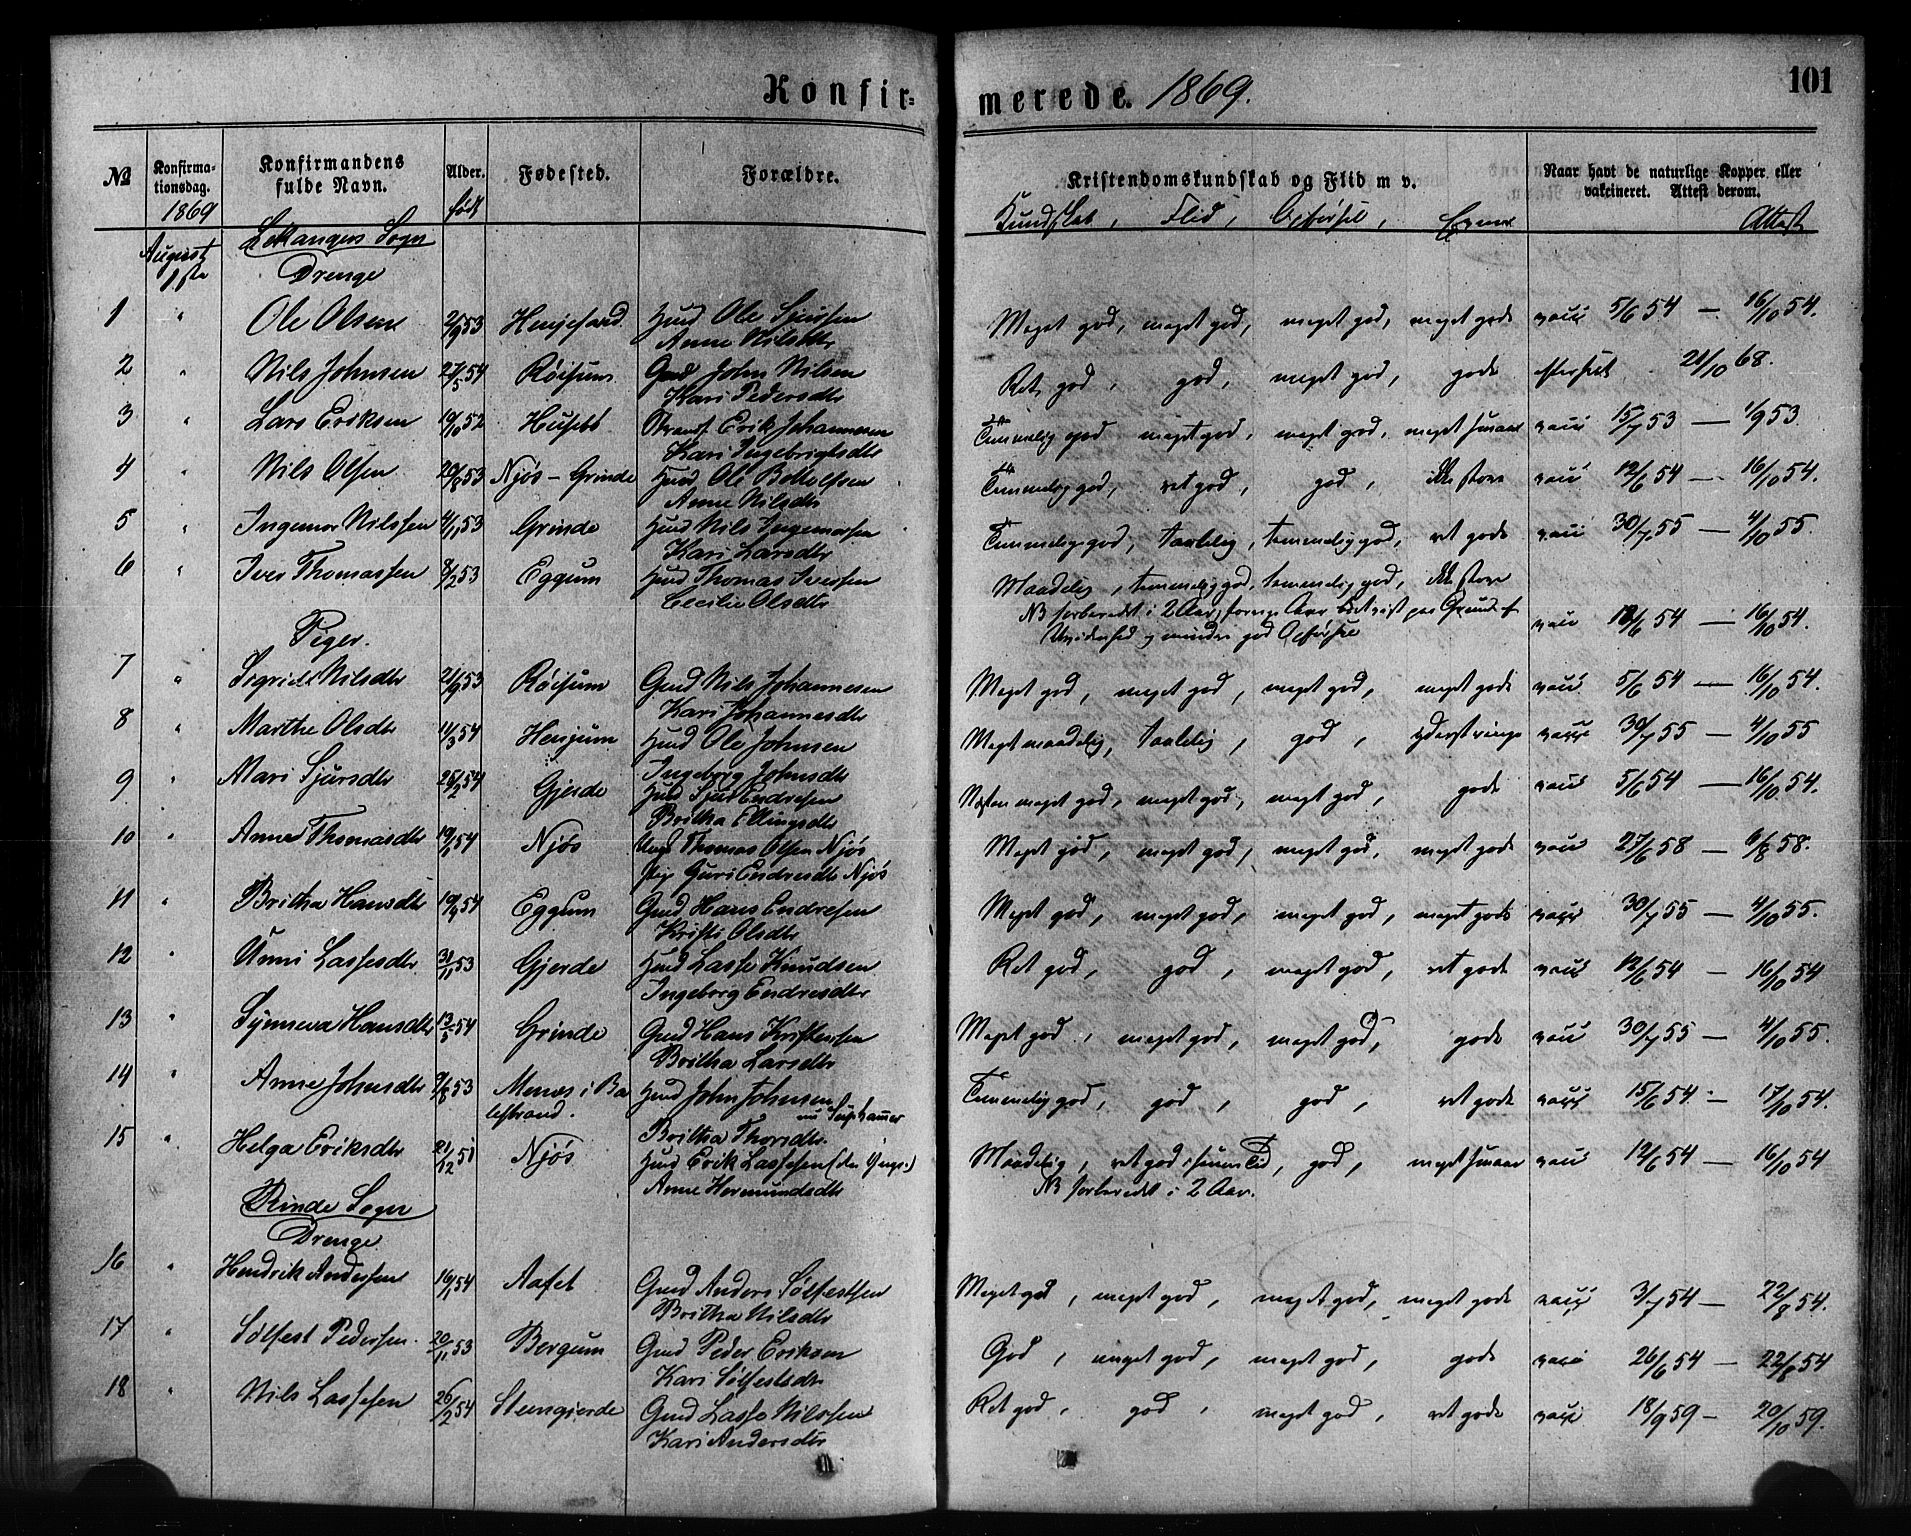 Konfir=
merede. 1869.
101
№
Konfirma-
tionsdag.
1869
Konfirmandens
fulde Navn.
Alder.
født
Fødested.
Forældre.
Kristendomskundskab og Flid m v.
Kundskab, Flid, Opførsel, Evner
Naar havt de naturlige Kopper eller
vakcineret. Attest derom.
Attest
August
1ste
Lekangers Sogn
Drenge
1 " Ole Olsen 2/9 53 Husm Ole Sjursen
Anne Nilsdtr
Meget god, meget god, meget god, meget gode vacc 5/6 54 — 16/10 54.
2 " Nils Johnsen 27/5 54 Røisum Gmd John Nilsen
Kari Pedersdtr
Ret god, god, meget god, gode 21/10 68.
3 " Lars Eriksen 19/10 52 Husebø Strands. Erik Johannesen
Kari Ingebrigtsdtr
Temmelig god meget god, meget god, meget smaa vacc 15/7 53 — 1/9 53.
4 " Nils Olsen 20/8 53 Njøs - Grinde Husm Ole Botolfsen
Anne Nilsdtr
Temmelig god, ret god, god, ikke store vacc 12/6 54 — 16/10 54.
5 " Ingemor Nilssen 4/1 53 Grinde Husm Nils Ingemorsen
Kari Larsdtr
Temmelig god, taalelig, temmelig god, ret gode vacc 30/7 55 — 4/10 55.
6 " Iver Thomassen 8/2 53 Eggum Husm Thomas Iversen
Cecilie Olsdtr
Maadelig, temmelig god, temmelig god, ikke store
NB forberedt i 2 Aar, forrige Aar paa Grund af
Uvidenhed og mindre god Opførsel vacc 12/6 54 — 16/10 54.
Piger.
7 " Sigrid Nilsdtr 21/9 53 Røisum Gmd Nils Johannesen
Kari Johannesdtr
Meget god, meget god, meget god, meget gode vacc 5/6 54 — 16/10 54.
8 " Marthe Olsdtr 11/3 54 Henjum Husm Ole Johnsen
Ingeborg Johnsdtr
Meget maadelig, taalelig, god, yderst ringe vacc 30/7 55 — 4/10 55
9 " Mari Sjursdtr 25/2 54 Gjerde Husm Sjur Endresen
Britha Ellingsdtr
Næsten meget god, meget god, meget god, gode vacc 5/6 54 — 16/10 54.
10 " Anne Thomasdtr 19/6 54 Njøs Ungk Thomas Olsen Njøs
Pige Guri Endresdtr Njøs
Meget god, meget god, meget god, meget gode vacc 27/6 58 — 6/8 58.
11 " Britha Hansdtr 19/4 54 Eggum Gmd Hans Endresen
Kristi Olsdtr
Meget god, meget god, meget god, meget gode vacc 30/7 55 — 4/10 55.
12 " Unni Lassesdtr 30/11 53 Gjerde Husm Lasse Knudsen
Ingeborg Endresdtr
Ret god, god, meget god, ret gode vacc 12/6 54 — 16/10 54
13 " Synneva Hansdtr 13/5 54 Grinde Gmd Hans Kristensen
Britha Larsdtr
Meget god, meget god, meget god, gode vacc 30/7 55 — 4/10 55.
14 " Anne Johnsdtr 9/8 53 Menes i Ba
lestrand. Husm John Johnsen
nu
Britha Thorsdtr.
Temmelig god, god, god, ret gode vacc 15/6 54 - 17/10 54.
15 " Helga Eriksdtr 21/12 51 Njøs Husm Erik Lassesen (den Yngr.)
Anne Hermundsdtr
Maadelig, ret god i sinne Tid, god, meget smaa vacc 12/6 54 — 16/10 54
NB forberedt i 2 Aar.
Rinde Sogn
Drenge
16 " Hendrik Andersen 16/1 54 Aafet Gmd Anders Sølfestsen
Britha Nilsdtr
Meget god, meget god, meget god, meget gode vacc 3/7 54 — 22/8 54.
17 " Sølfest Pedersen 20/11 53 Bergum Gmd Peder Eriksen
Kari Sølfestsdtr
God, meget god, meget god, gode vacc 26/6 54 — 22/8 54
18 " Nils Lassesen 26/2 54 Steingjerde Gmd Lasse Nilssen
Kari Andersdtr
Ret god, god, meget god, ret gode vacc 18/9 59 — 20/10 59.